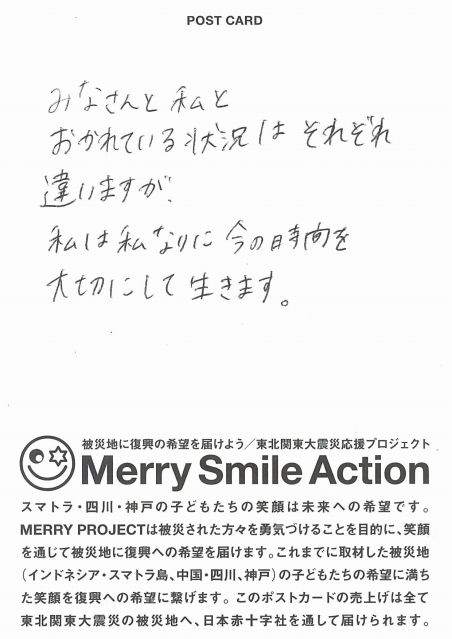 POST CARD
みなさんと私と
おかれている状況は それぞれ
違いますが、
私は私なりに今の時間を
大切にして生きます。
被災地に復興の希望を届けよう/東北関東大震災応援プロジェクト
Merry Smile Action
スマトラ・四川・神戸の子どもたちの笑顔は未来への希望です。
MERRY PROJECTは被災された方々を勇気づけることを目的に、笑顔
を通じて被災地に復興への希望を届けます。これまでに取材した被災地
(インドネシア・スマトラ島、中国・四川、神戸)の子どもたちの希望に満ち
た笑顔を復興への希望に繋げます。このポストカードの売上げは全て
東北関東大震災の被災地へ、日本赤十字社を通して届けられます。